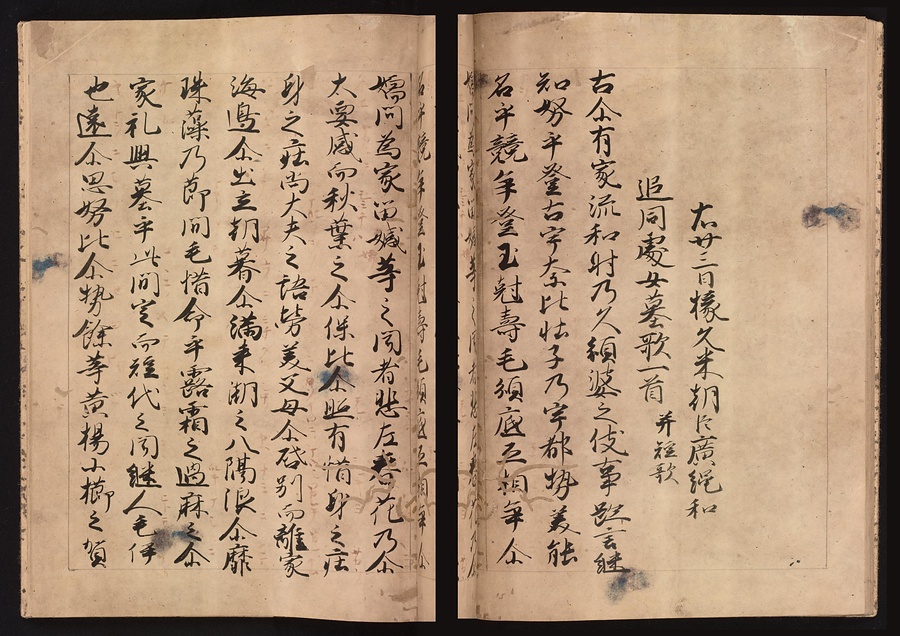 右廿三日掾久米朝臣廣縄和
追同處女墓歌一首 并短歌
古尓有家流和射乃久須婆之伎事跡言継
知努乎登古宇奈比壮子乃宇都勢美能
名乎競争登玉剋壽毛須底弖相争尓
嬬問為家留嬢等之聞者悲左春花乃尓
太要盛而秋葉之尓保比尓照有惜身之壮
身之壮尚大夫之語勞美父母尓啓別而離家
海邊尓出立朝暮尓満来潮之八隔浪尓靡
珠藻乃節間毛惜命乎露霜之過麻之尓
家礼奥墓乎此間定而後代之聞継人毛伊
也遠尓思努比尓勢餘等黄楊小櫛之賀